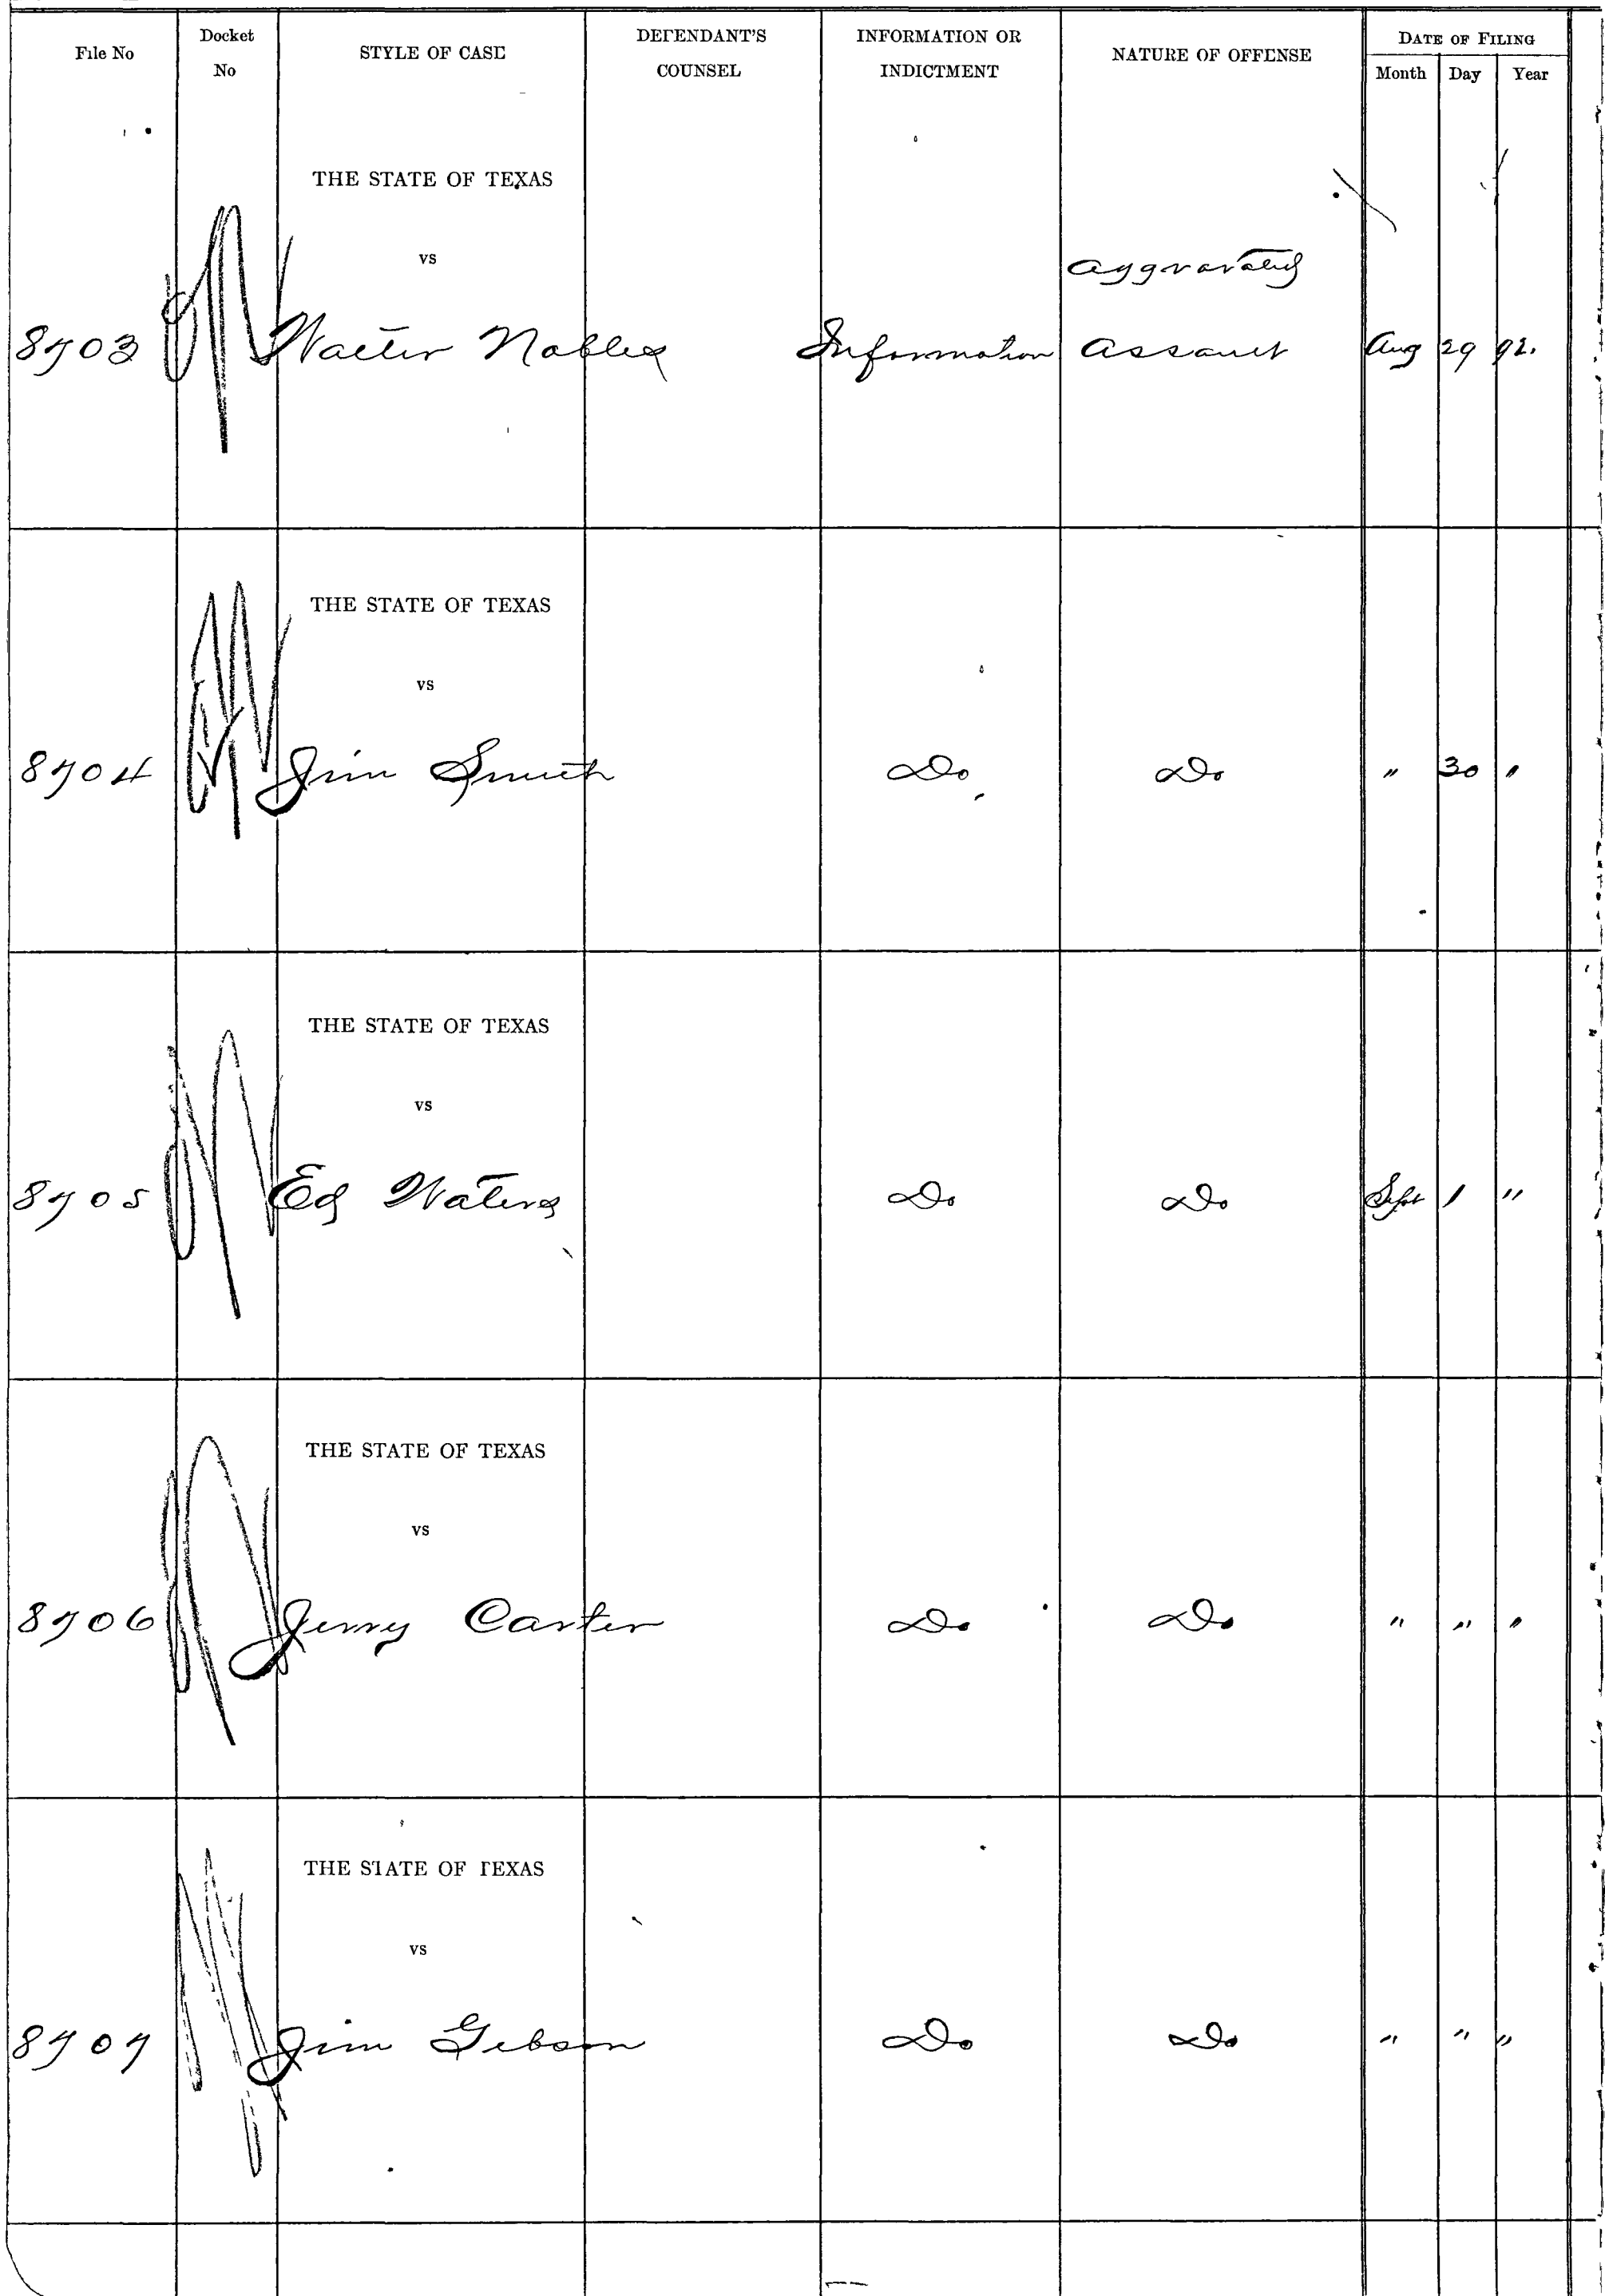 File No
Docket No
STYLE OF CASE
DEFENDANT'S COUNSEL
INFORMATION OR INDICTMENT
NATURE OF OFFENSE
DATE OF FILING
Month Day Year
THE STATE OF TEXAS
vs
Aggravated
8703 Walter Nobles Information Assault Aug 29 92.
THE STATE OF TEXAS
vs
8704 Jim Smith Do Do " 30 "
THE STATE OF TEXAS
vs
8705 Ed Waters Do Do Sept 1 "
THE STATE OF TEXAS
vs
8706 Jerry Carter Do Do " " "
THE STATE OF TEXAS
vs
8707 Jim Gibson Do Do " " "